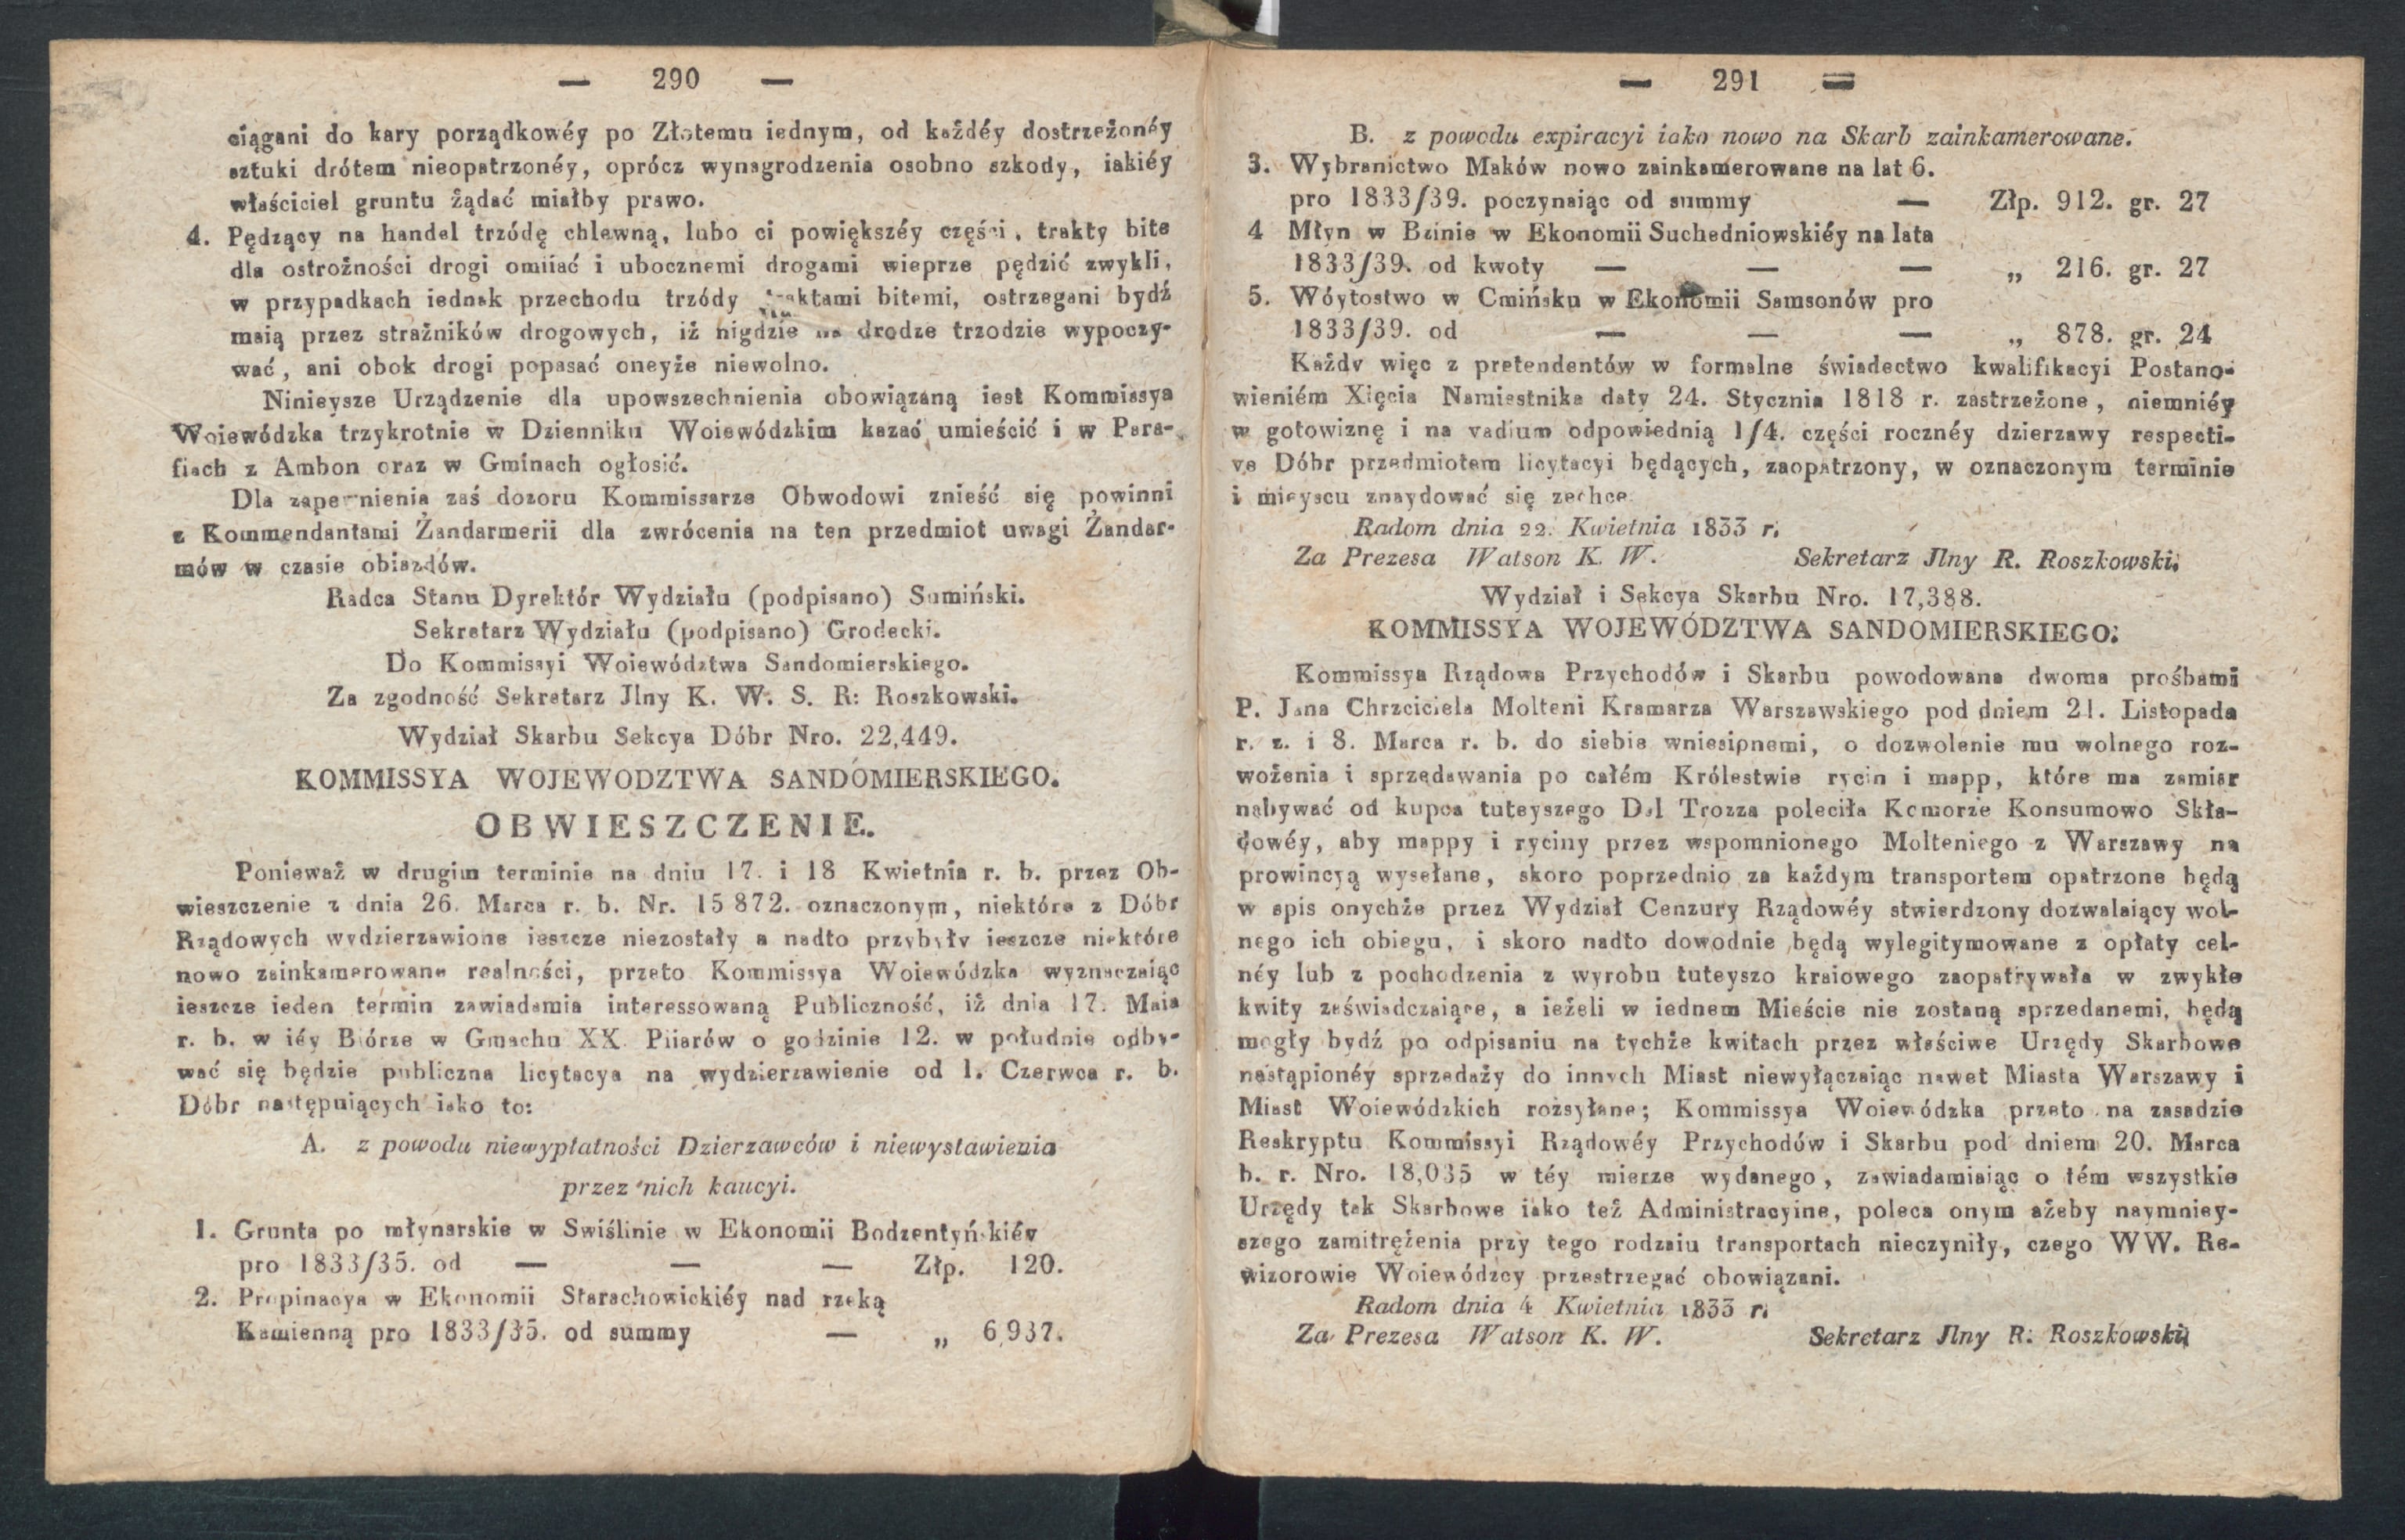 — 290 —
ciągani do kary porządkowéy po Złotemu iednym, od każdéy dostrzeżonéy
sztuki drótem nieopatrzonéy, oprócz wynagrodzenia osobno szkody, iakiéy
właściciel gruntu żądać miałby prawo.
4. Pędzący na handel trzódę chlewną, lubo ci powiększéy części, trakty bite
dla ostrożności drogi omiiać i ubocznemi drogami wieprze pędzić zwykli,
w przypadkach iednak przechodu trzódy traktami bitemi, ostrzegani bydź
maią przez strażników drogowych, iż nigdzie na drodze trzodzie wypoczy-
wać, ani obok drogi popasać oneyże niewolno.
Ninieysze Urządzenie dla upowszechnienia obowiązaną iest Kommissya
Woiewódzka trzykrotnie w Dzienniku Woiewódzkim kazać umieścić i w Para-
fiach z Ambon oraz w Gminach ogłosić.
Dla zapewnienia zaś dozoru Kommissarze Obwodowi znieść się powinni
z Kommendantami Żandarmerii dla zwrócenia na ten przedmiot uwagi Żandar-
mów w czasie obiazdów.
Radca Stanu Dyrektór Wydziału (podpisano) Sumiński.
Sekretarz Wydziału (podpisano) Grodecki.
Do Kommissyi Woiewództwa Sandomierskiego.
Za zgodność Sekretarz Jlny K. W. S. R: Roszkowski.
Wydział Skarbu Sekcya Dóbr Nro. 22,449.
KOMMISSYA WOJEWODZTWA SANDOMIERSKIEGO.
OBWIESZCZENIE.
Ponieważ w drugim terminie na dniu 17. i 18 Kwietnia r. b. przez Ob-
wieszczenie z dnia 26. Marca r. b. Nr. 15 872. oznaczonym, niektóre z Dóbr
Rządowych wydzierzawione ieszcze niezostały a nadto przybyły ieszcze niektóre
nowo zainkamerowane realności, przeto Kommissya Woiewódzka wyznaczaiąc
ieszcze ieden termin zawiadamia interessowaną Publiczność, iż dnia 17. Maia
r. b. w iéy Biórze w Gmachu XX. Piiarów o godzinie 12. w południe odby-
wać się będzie publiczna licytacya na wydzierzawienie od 1. Czerwca r. b.
Dóbr następuiących iako to:
A. z powodu niewypłatności Dzierzawców i niewystawienia
przez nich kaucyi.
1. Grunta po młynarskie w Swiślinie w Ekonomii Bodzentyńskiéy
pro 1833/35. od — — — Złp. 120.
2. Propinacya w Ekonomii Starachowickiéy nad rzeką
Kamienną pro 1833/35. od summy — „ 6,937.
— 291 —
B. z powodu expiracyi iako nowo na Skarb zainkamerowane.
3. Wybranictwo Maków nowo zainkamerowane na lat 6.
pro 1833/39. poczynaiąc od summy — Złp. 912. gr. 27
4 Młyn w Bzinie w Ekonomii Suchedniowskiéy na lata
1833/39. od kwoty — — — „ 216. gr. 27
5. Wóytostwo w Cmińsku w Ekonomii Samsonów pro
1833/39. od — — — „ 878. gr. 24
Każdy więc z pretendentów w formalne świadectwo kwalifikacyi Postano-
wieniém Xięcia Namiestnika daty 24. Stycznia 1818 r. zastrzeżone, niemniéy
w gotowiznę i na vadium odpowiednią 1/4. części rocznéy dzierzawy respecti-
ve Dóbr przedmiotem licytacyi będących, zaopatrzony, w oznaczonym terminie
i mieyscu znaydować się zechce.
Radom dnia 22. Kwietnia 1833 r.
Za Prezesa Watson K. W. Sekretarz Jlny R. Roszkowski.
Wydział i Sekcya Skarbu Nro. 17,388.
KOMMISSYA WOJEWÓDZTWA SANDOMIERSKIEGO.
Kommissya Rządowa Przychodów i Skarbu powodowana dwoma prośbami
P. Jana Chrzciciela Molteni Kramarza Warszawskiego pod dniem 21. Listopada
r. z. i 8. Marca r. b. do siebie wniesionemi, o dozwolenie mu wolnego roz-
wożenia i sprzedawania po całém Królestwie rycin i mapp, które ma zamiar
nabywać od kupca tuteyszego Dal Trozza poleciła Komorze Konsumowo Skła-
dowéy, aby mappy i ryciny przez wspomnionego Molteniego z Warszawy na
prowincyą wysełane, skoro poprzednio za każdym transportem opatrzone będą
w spis onychże przez Wydział Cenzury Rządowéy stwierdzony dozwalaiący wol-
nego ich obiegu, i skoro nadto dowodnie będą wylegitymowane z opłaty cel-
néy lub z pochodzenia z wyrobu tuteyszo kraiowego zaopatrywała w zwykłe
kwity zaświadczaiące, a ieżeli w iednem Mieście nie zostaną sprzedanemi, będą
mogły bydź po odpisaniu na tychże kwitach przez właściwe Urzędy Skarbowe
nastąpionéy sprzedaży do innych Miast niewyłączaiąc nawet Miasta Warszawy i
Miast Woiewódzkich rozsyłane; Kommissya Woiewódzka przeto na zasadzie
Reskryptu Kommissyi Rządowéy Przychodów i Skarbu pod dniem 20. Marca
b. r. Nro. 18,035 w téy mierze wydanego, zawiadamiaiąc o tém wszystkie
Urzędy tak Skarbowe iako też Administracyine, poleca onym ażeby naymniey-
szego zamitrężenia przy tego rodzaiu transportach nieczyniły, czego WW. Re-
wizorowie Woiewódzcy przestrzegać obowiązani.
Radom dnia 4 Kwietnia 1833 r.
Za Prezesa Watson K. W. Sekretarz Jlny R: Roszkowski.